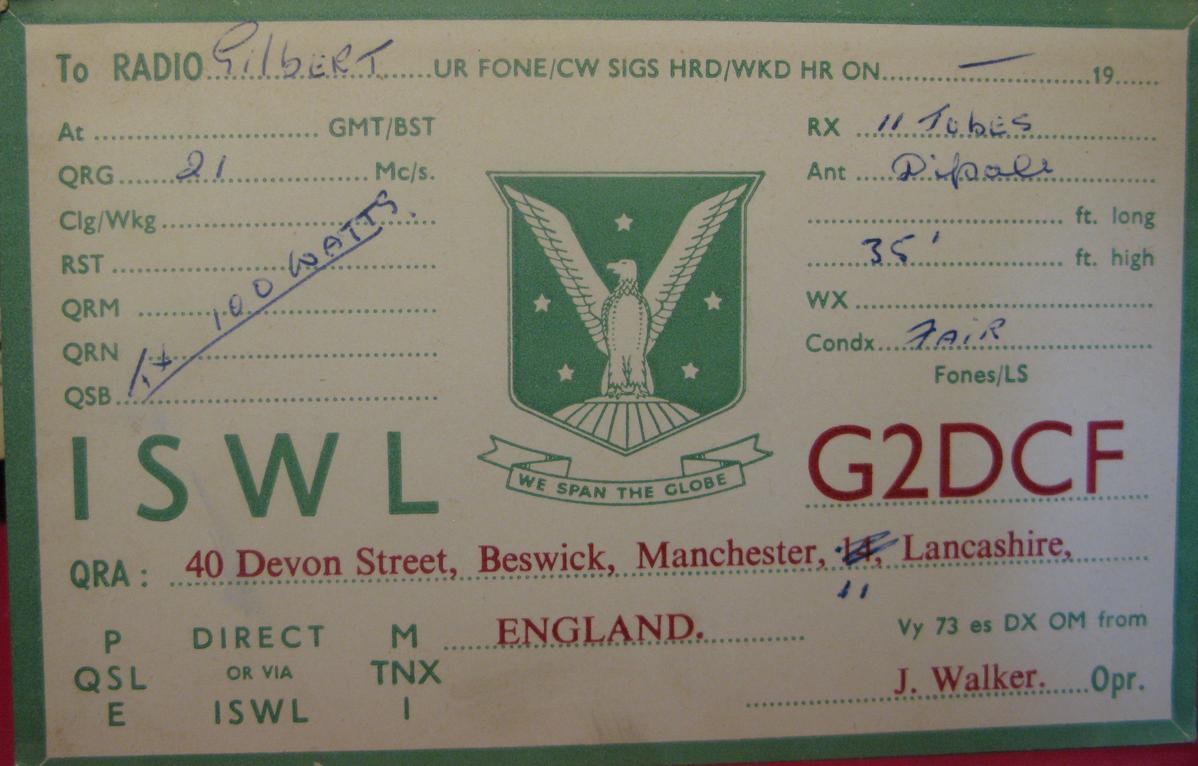 To RADIO GilbERT UR FONE/CW SIGS HRD/WKD HR ON — 19
At GMT/BST
QRG 21 Mc/s.
Clg/Wkg
RST
QRM
QRN
QSB
Tx 100 WATTS.
RX 11 Tubes
Ant Dipole
ft. long
35' ft. high
WX
Condx FAiR
Fones/LS
WE SPAN THE GLOBE
ISWL
G2DCF
QRA: 40 Devon Street, Beswick, Manchester, 14, Lancashire,
11
ENGLAND.
P DIRECT M
QSL OR VIA TNX
E ISWL I
Vy 73 es DX OM from
J. Walker. Opr.